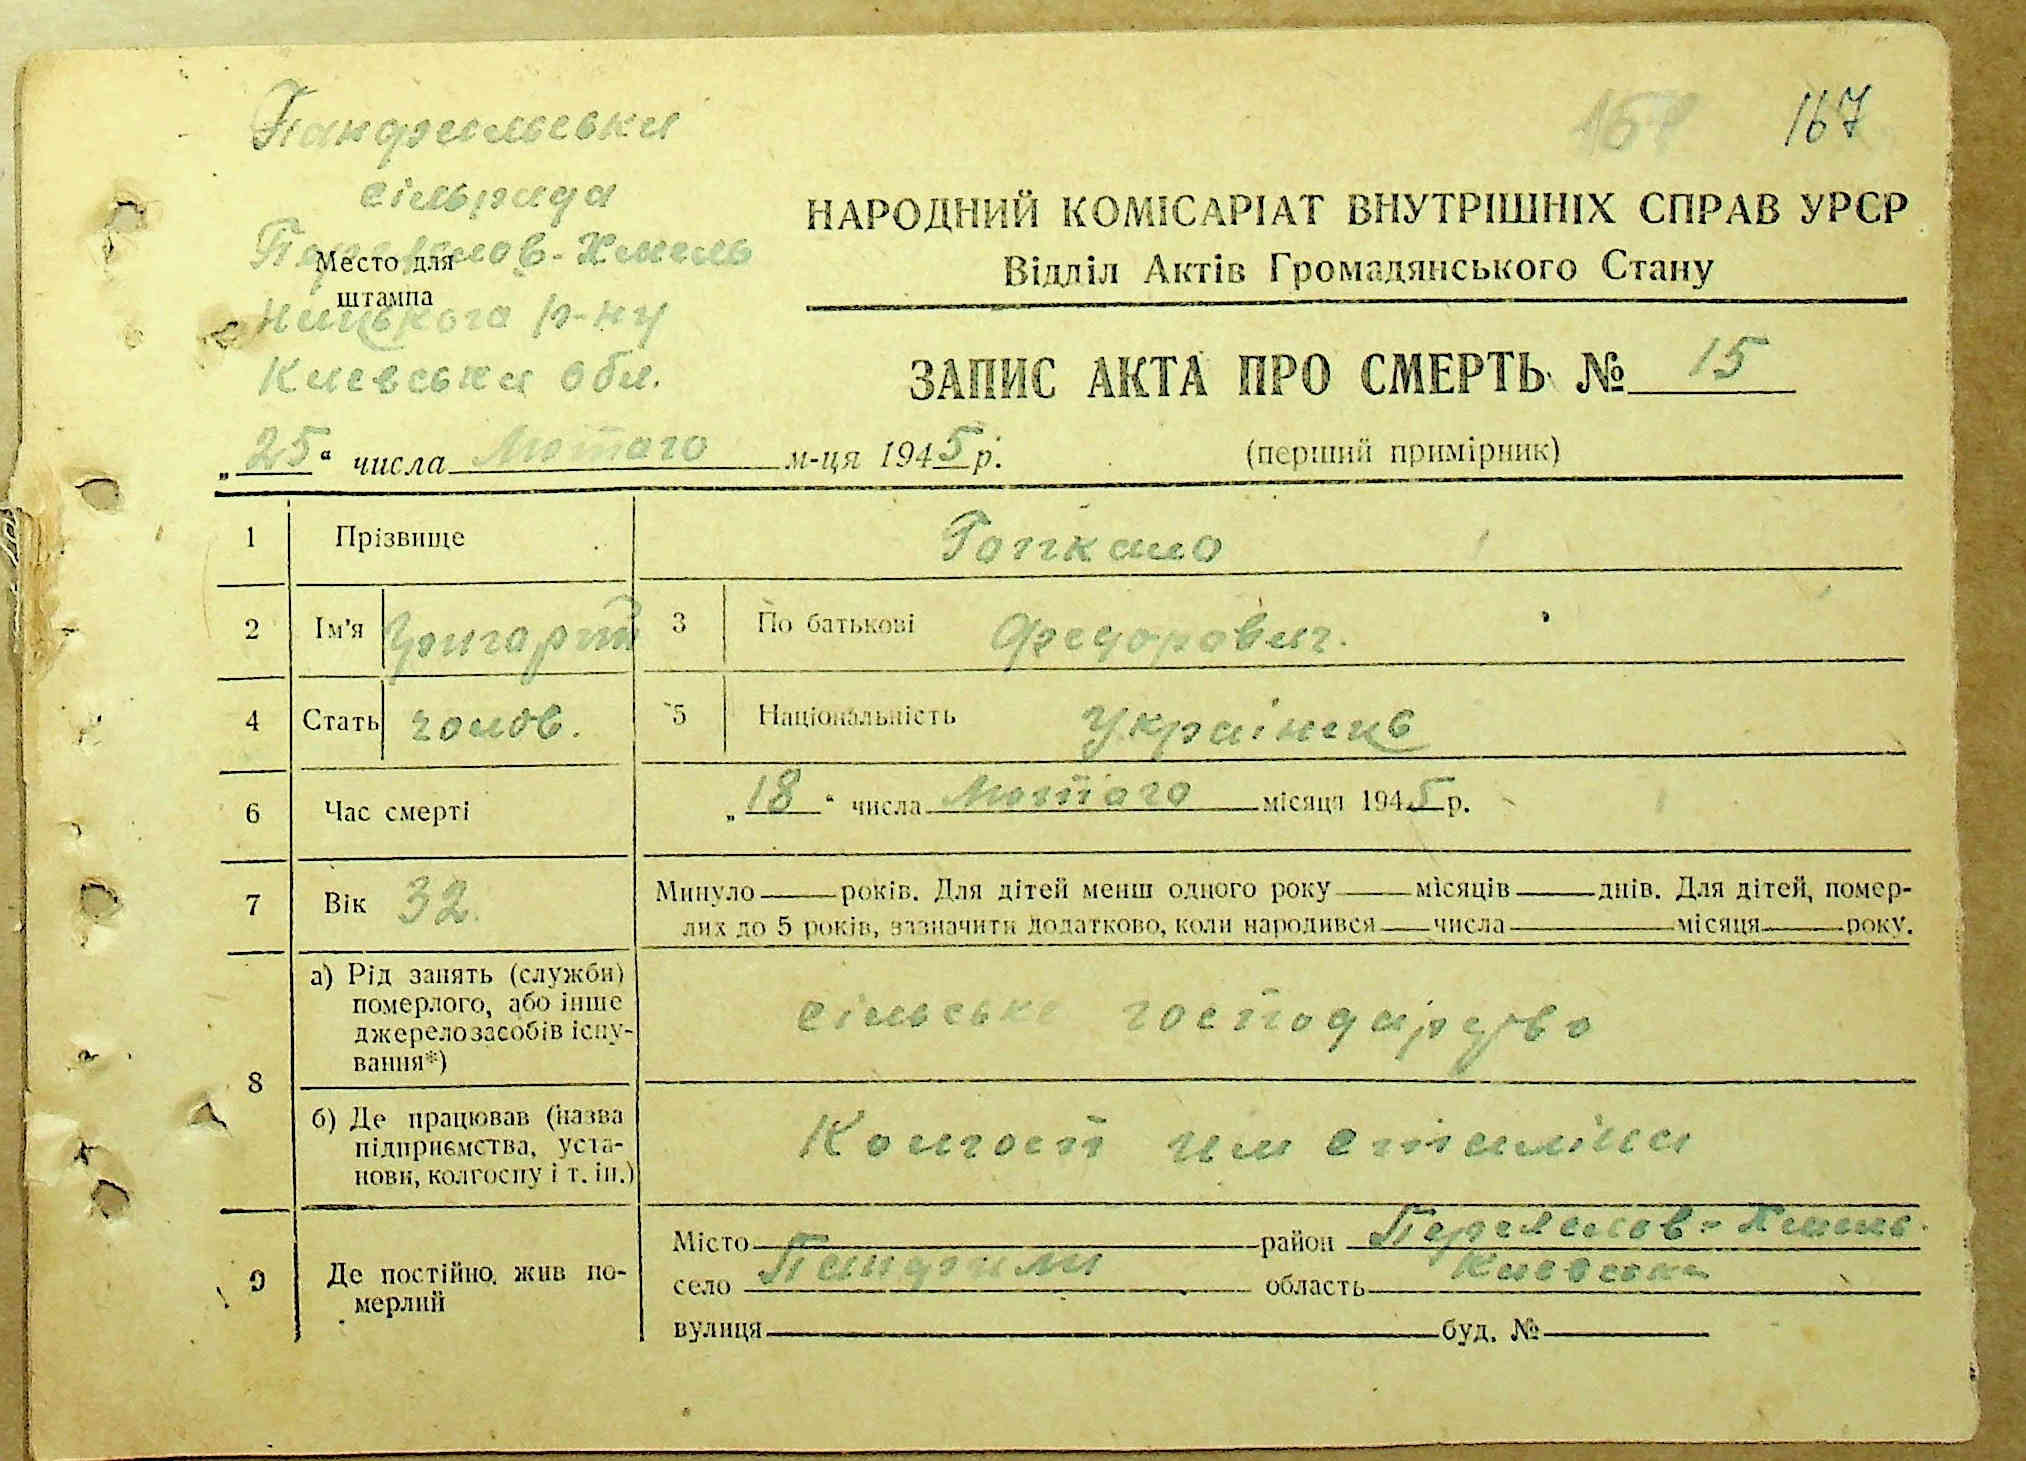 167
Панфильська
сільрада
Переяслов-Хмель
Место для
штампа
ницького р-ну
Киевська обл.
НАРОДНИЙ КОМІСАРІАТ ВНУТРІШНІХ СПРАВ УРСР
Відділ Актів Громадянського Стану
ЗАПИС АКТА ПРО СМЕРТЬ № 15
(перший примірник)
„25“ числа Лютого м-ця 1945 р.
1 Прізвище Гопкало
2 Ім'я Григорий 3 По батькові Федорович.
4 Стать голов. 5 Національність Українець
6 Час смерті „18“ числа Лютого місяця 1945 р.
7 Вік 32. Минуло ___ років. Для дітей менш одного року ___ місяців ___ днів. Для дітей, помер-
лих до 5 років, зазначити додатково, коли народився ___ числа ___ місяця ___ року.
8 а) Рід занять (служби)
померлого, або інше
джерело засобів існу-
вання*)
сільське господарство
б) Де працював (назва
підприємства, уста-
нови, колгоспу і т. ін.)
Колгосп им Сталіна
9 Де постійно жив по-
мерлий
Місто ___ район Переяслов-Хмель.
село Панфили область Киевська
вулиця ___ буд. № ___